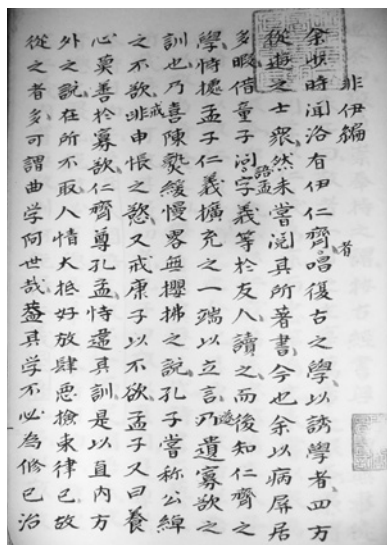 非伊編
余收時聞洛有伊仁齋者唱復古之學以誘學者四方
從遊之士衆然未嘗閱其所著書今也余以病屏居
多暇借童子問語孟字義等於友人讀之而後知仁齊之
學恃據孟子仁義擴充之一端以立言乃遂遺寡欲之
訓也乃喜陳熨緩慢畧無攖拂之說孔子嘗称公綽
之不欲戒申棖之慾又戒康子以不欲孟子又曰養
心莫善於寡欲仁齊尊孔孟恃違其訓是以直内方
外之說在所不取人情大抵好放肆悪撿束律已故
從之者多可謂曲学阿世哉蓋其学不必為修已治